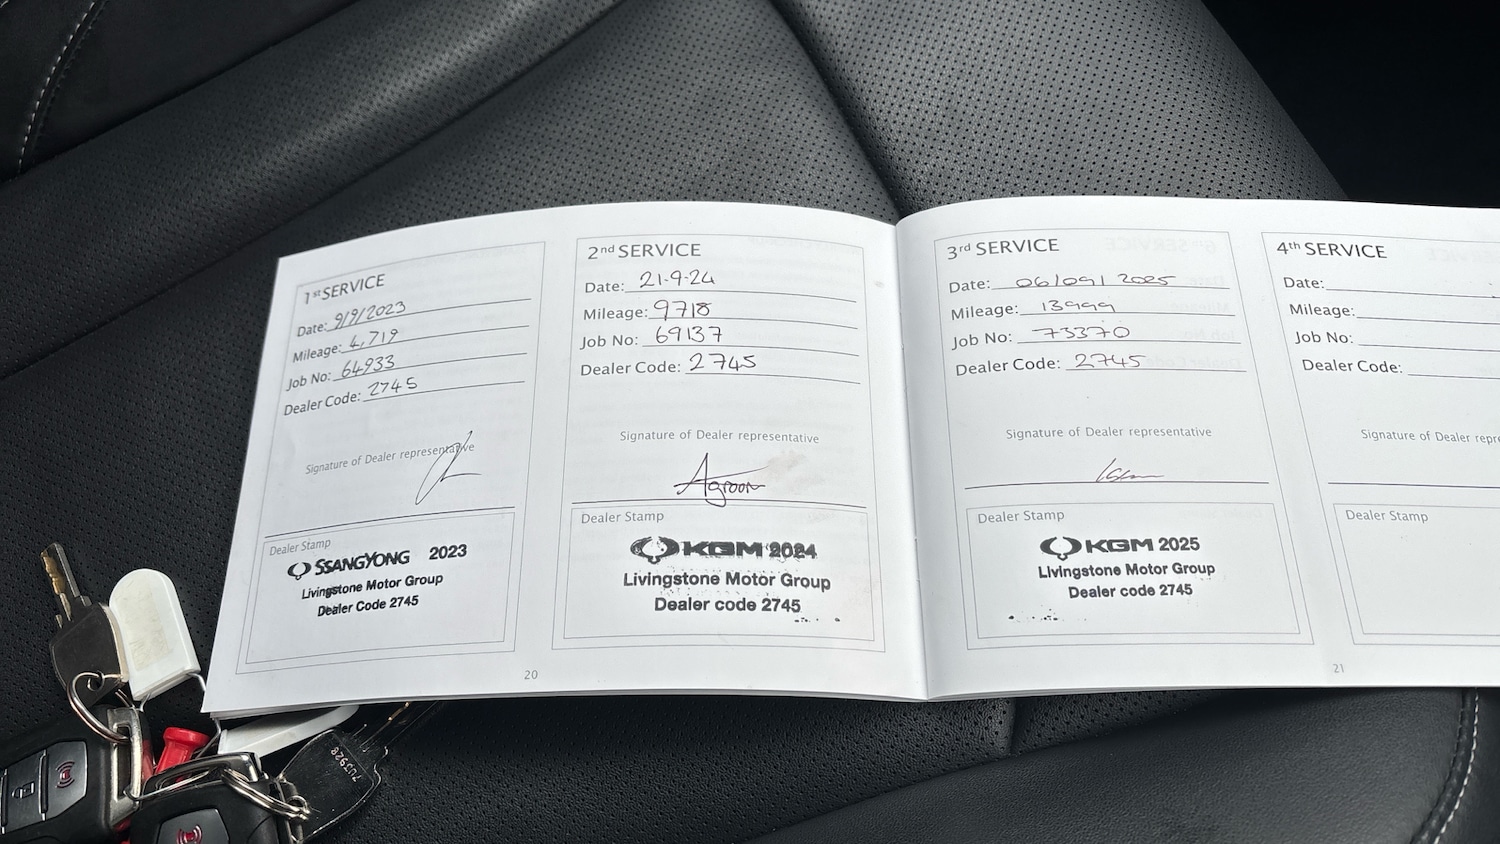 1st SERVICE
Date: 9/9/2023
Mileage: 4,719
Job No: 64933
Dealer Code: 2745
Signature of Dealer representative
Dealer Stamp
SSANGYONG 2023
Livingstone Motor Group
Dealer Code 2745
2nd SERVICE
Date: 21-9-24
Mileage: 9718
Job No: 69137
Dealer Code: 2745
Signature of Dealer representative
Dealer Stamp
KGM 2024
Livingstone Motor Group
Dealer code 2745
20
3rd SERVICE
Date: 06/09/2025
Mileage: 13999
Job No: 73370
Dealer Code: 2745
Signature of Dealer representative
Dealer Stamp
KGM 2025
Livingstone Motor Group
Dealer code 2745
4th SERVICE
Date:
Mileage:
Job No:
Dealer Code:
Signature of Dealer repre
Dealer Stamp
21
7U3928